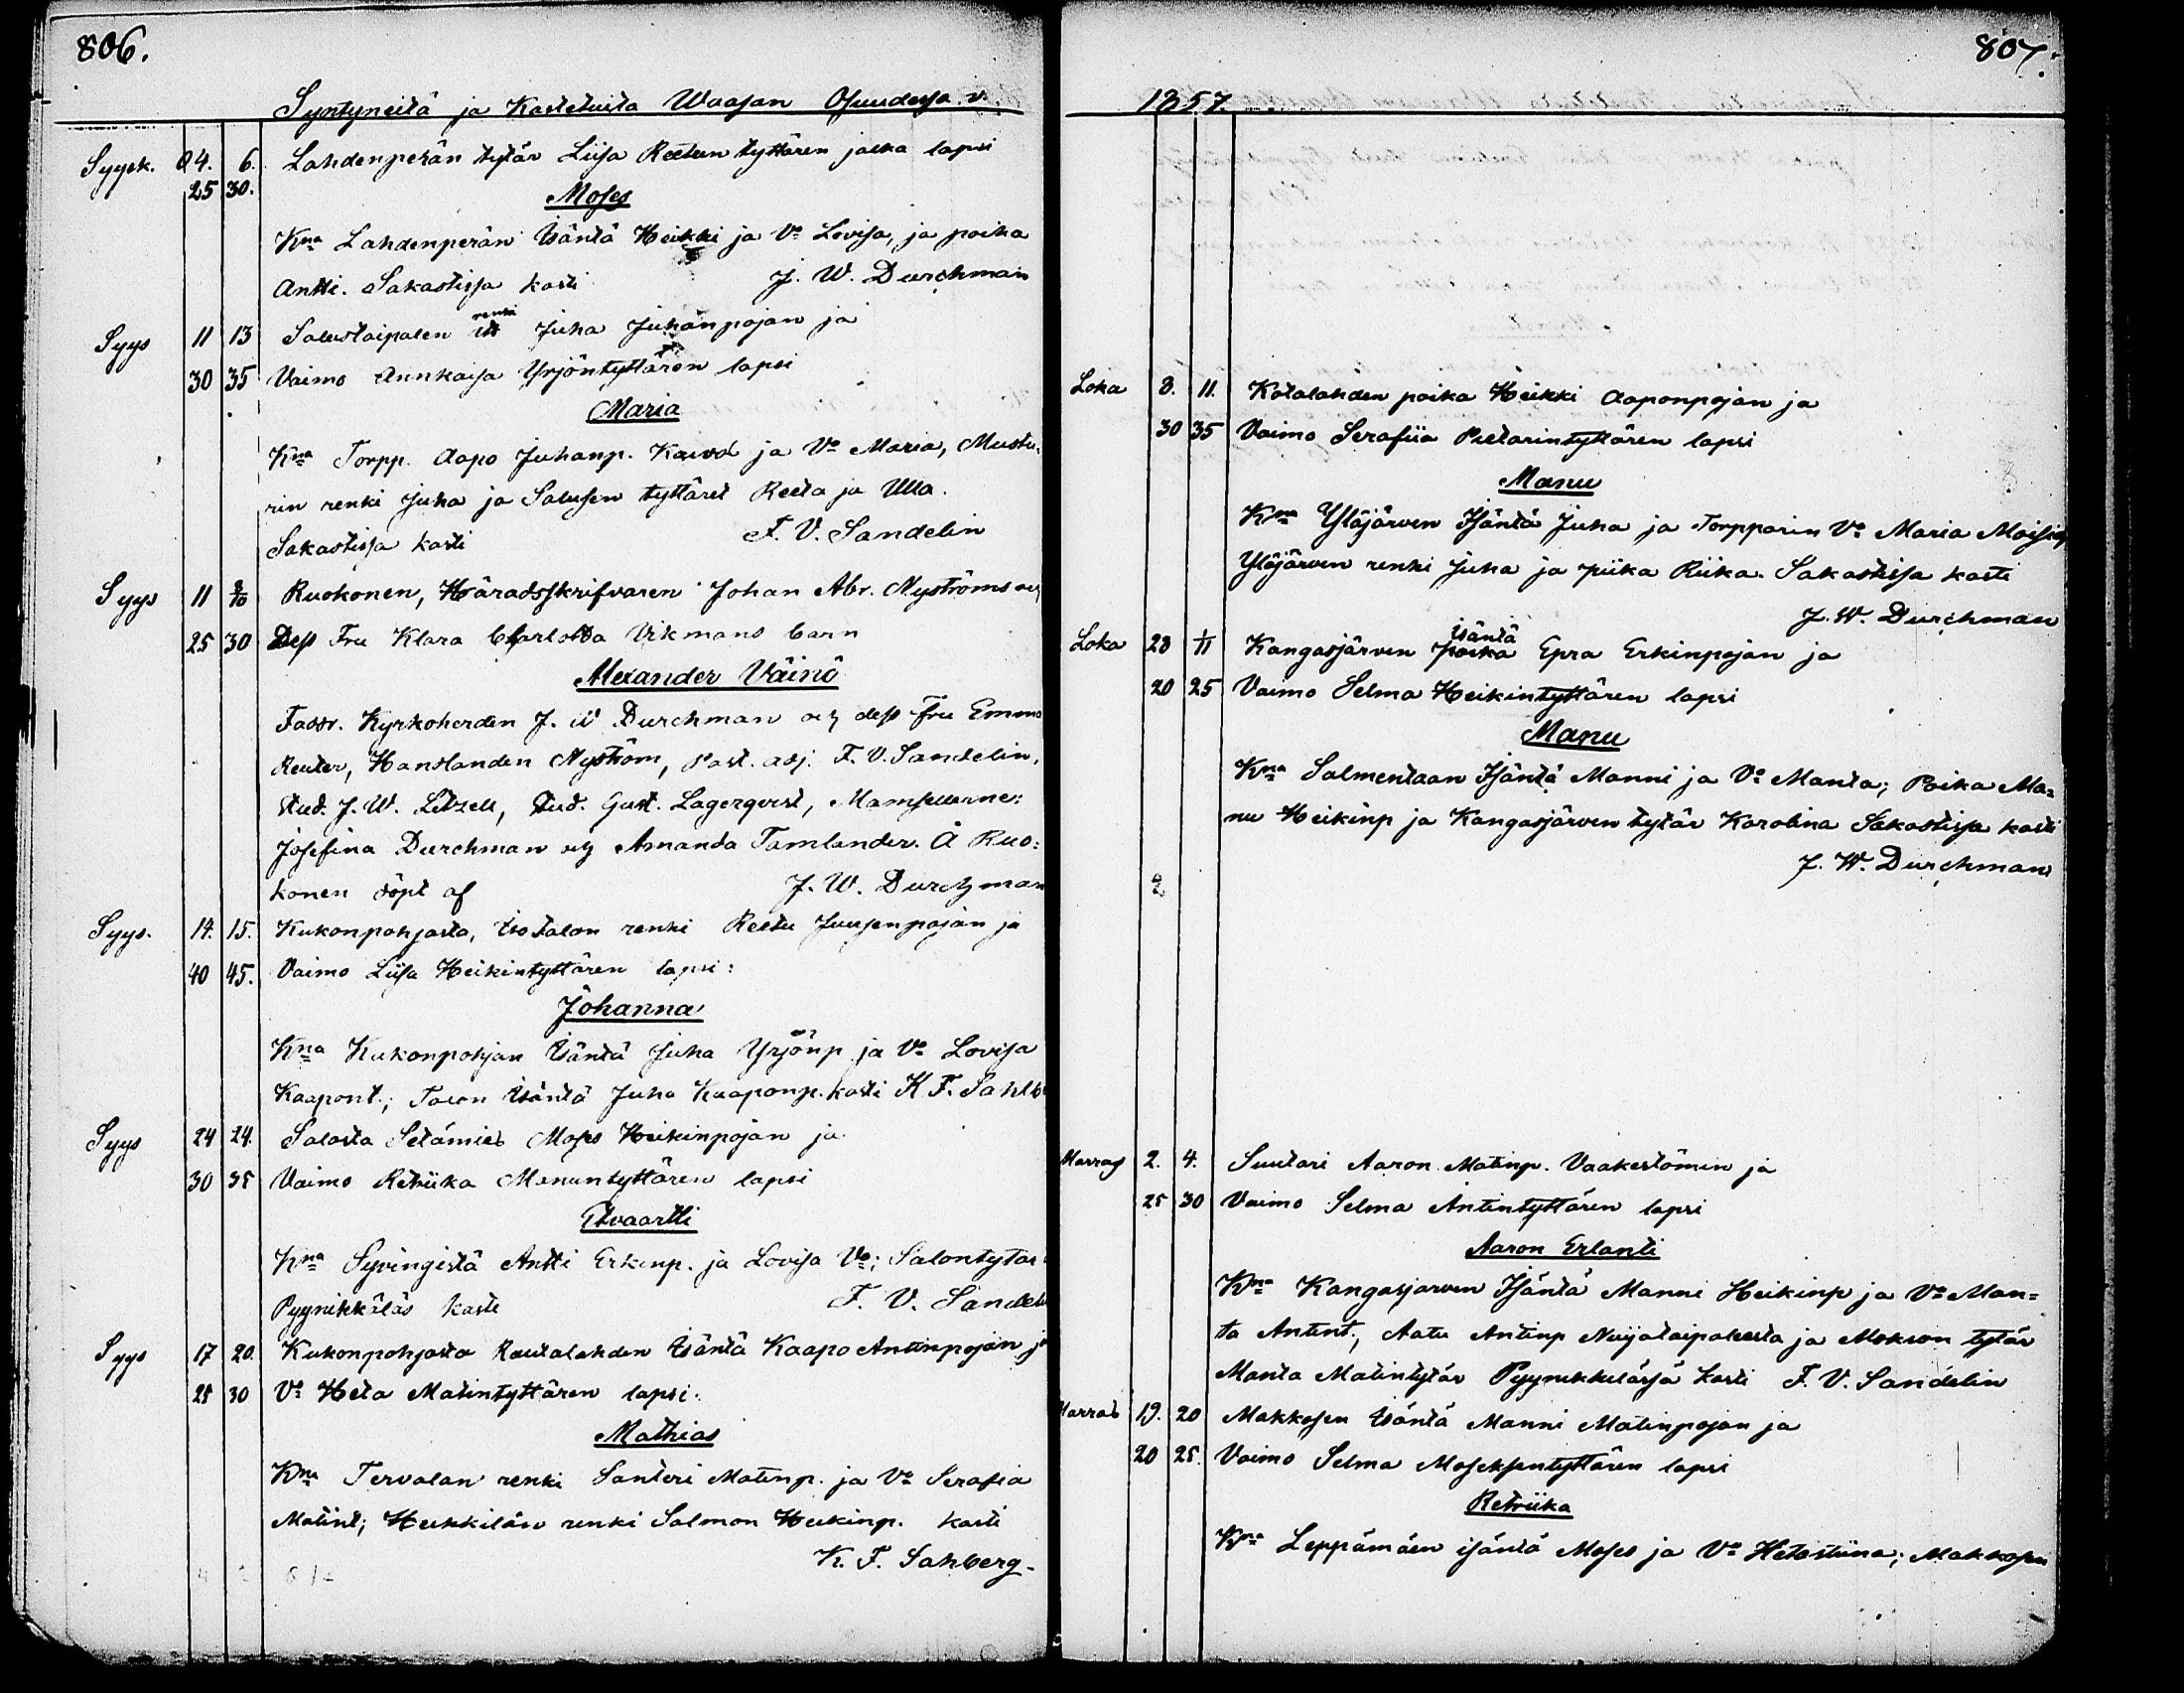 806.
Syntyneitä ja Kastetuita Waasan Osuudessa v.
Syysk. 4. 6. Lahdenperän tytär Liisa Reetun tyttären jalka lapsi
25 30.
Moses
Kna Lahdenperän Isäntä Heikki ja Vo Lovisa, ja poika
Antti. Sakastissa kasti J. W. Durchman
Syys 11 13 Salustaipalen renki Juha Juhanpojan ja
30 35 Vaimo Annkaisa Yrjöntyttären lapsi
Maria
Kna Torpp. Aapo Juhanp. ja Vo Maria, Mustu-
rin renki Juha ja Salusen tyttäret Reeta ja Ulla.
Sakastissa kasti F. V. Sandelin
Syys 11 2/10 Ruokonen, Häradsskrifvaren Johan Abr. Nyströms och
25 30 Dess Fru Klara Charlotta Vikmans barn
Alexander Väinö
Faddr. Kyrkoherden J. W Durchman och dess Fru Emma
Reuter, Hanslanden Nyström, Past. adj. F. V. Sandelin,
Stud. J. W. Litzell, Stud. Gust. Lagerqvist, Mamsellerne:
Josefina Durchman och Amanda Tamlander. Å Ruo=
konen döpt af J. W. Durchman
Syys. 14. 15. Kukonpohjasta, Isotalon renki Reetu Juusenpojan ja
40 45. Vaimo Liisa Heikintyttären lapsi:
Johanna
Kna Kukonpohjan Isäntä Juha Yrjönp ja Vo Lovisa
Kaapont.; Talon Isäntä Juha Kaaponp. kasti K F. Sahlb
Syys 24 24. Salosta Setämies Moses Heikinpojan ja
30 35 Vaimo Retriika Manuntyttären lapsi
Etvaartti
Kna Syvingistä Antti Erkinp. ja Lovisa Vo; Salontytär
Pyynikkäläs kaste F. V. Sandel
Syys 17 20. Kukonpohjasta Rautalahden Isäntä Kaapo Antinpojan j
25 30 Vo Heta Matintyttären lapsi.
Mathias
Kna Tervalan renki Santeri Matinp. ja Vo Serafia
Matint; Heikkilän renki Salmon Heikinp. kasti
K. F. Sahberg-
807.
1857.
Loka 8. 11. Kotalahden poika Heikki Aaponpojan ja
30 35 Vaimo Serafiia Pietarintyttären lapsi
Manu
Kna Yläjärven Isäntä Juha ja Torpparin Vo Maria
Yläjärven renki Juha ja piika Riika. Sakastissa kasti
J. W. Durchman
Loka 28 1/11 Kangasjärven Isäntä poika Epra Erkinpojan ja
20 25 Vaimo Selma Heikintyttären lapsi
Manu
Kna Salmentaan Isäntä Manni ja Vo Manta; Poika Ma=
nu Heikinp ja Kangasjärven tytär Karolina Sakastissa kasti
J. W. Durchman
Marras 2. 4. Suutari Aaron Matinp. Vaakestömin ja
25 30 Vaimo Selma Antintyttären lapsi
Aaron Erlanti
Kna Kangasjarven Isäntä Manni Heikinp ja Vo Man=
ta Antint., Aatu Antinp Nuijataipaleesta ja Mokson tytär
Manta Matintytär Pyynikkelässä kasti F. V. Sandelin
Marras 19. 20 Makkosen Isäntä Manni Matinpojan ja
20 25. Vaimo Selma Moseksentyttären lapsi
Retriika
Kna Leppämäen isäntä Moses ja Vo Hetastiina; Makkosen